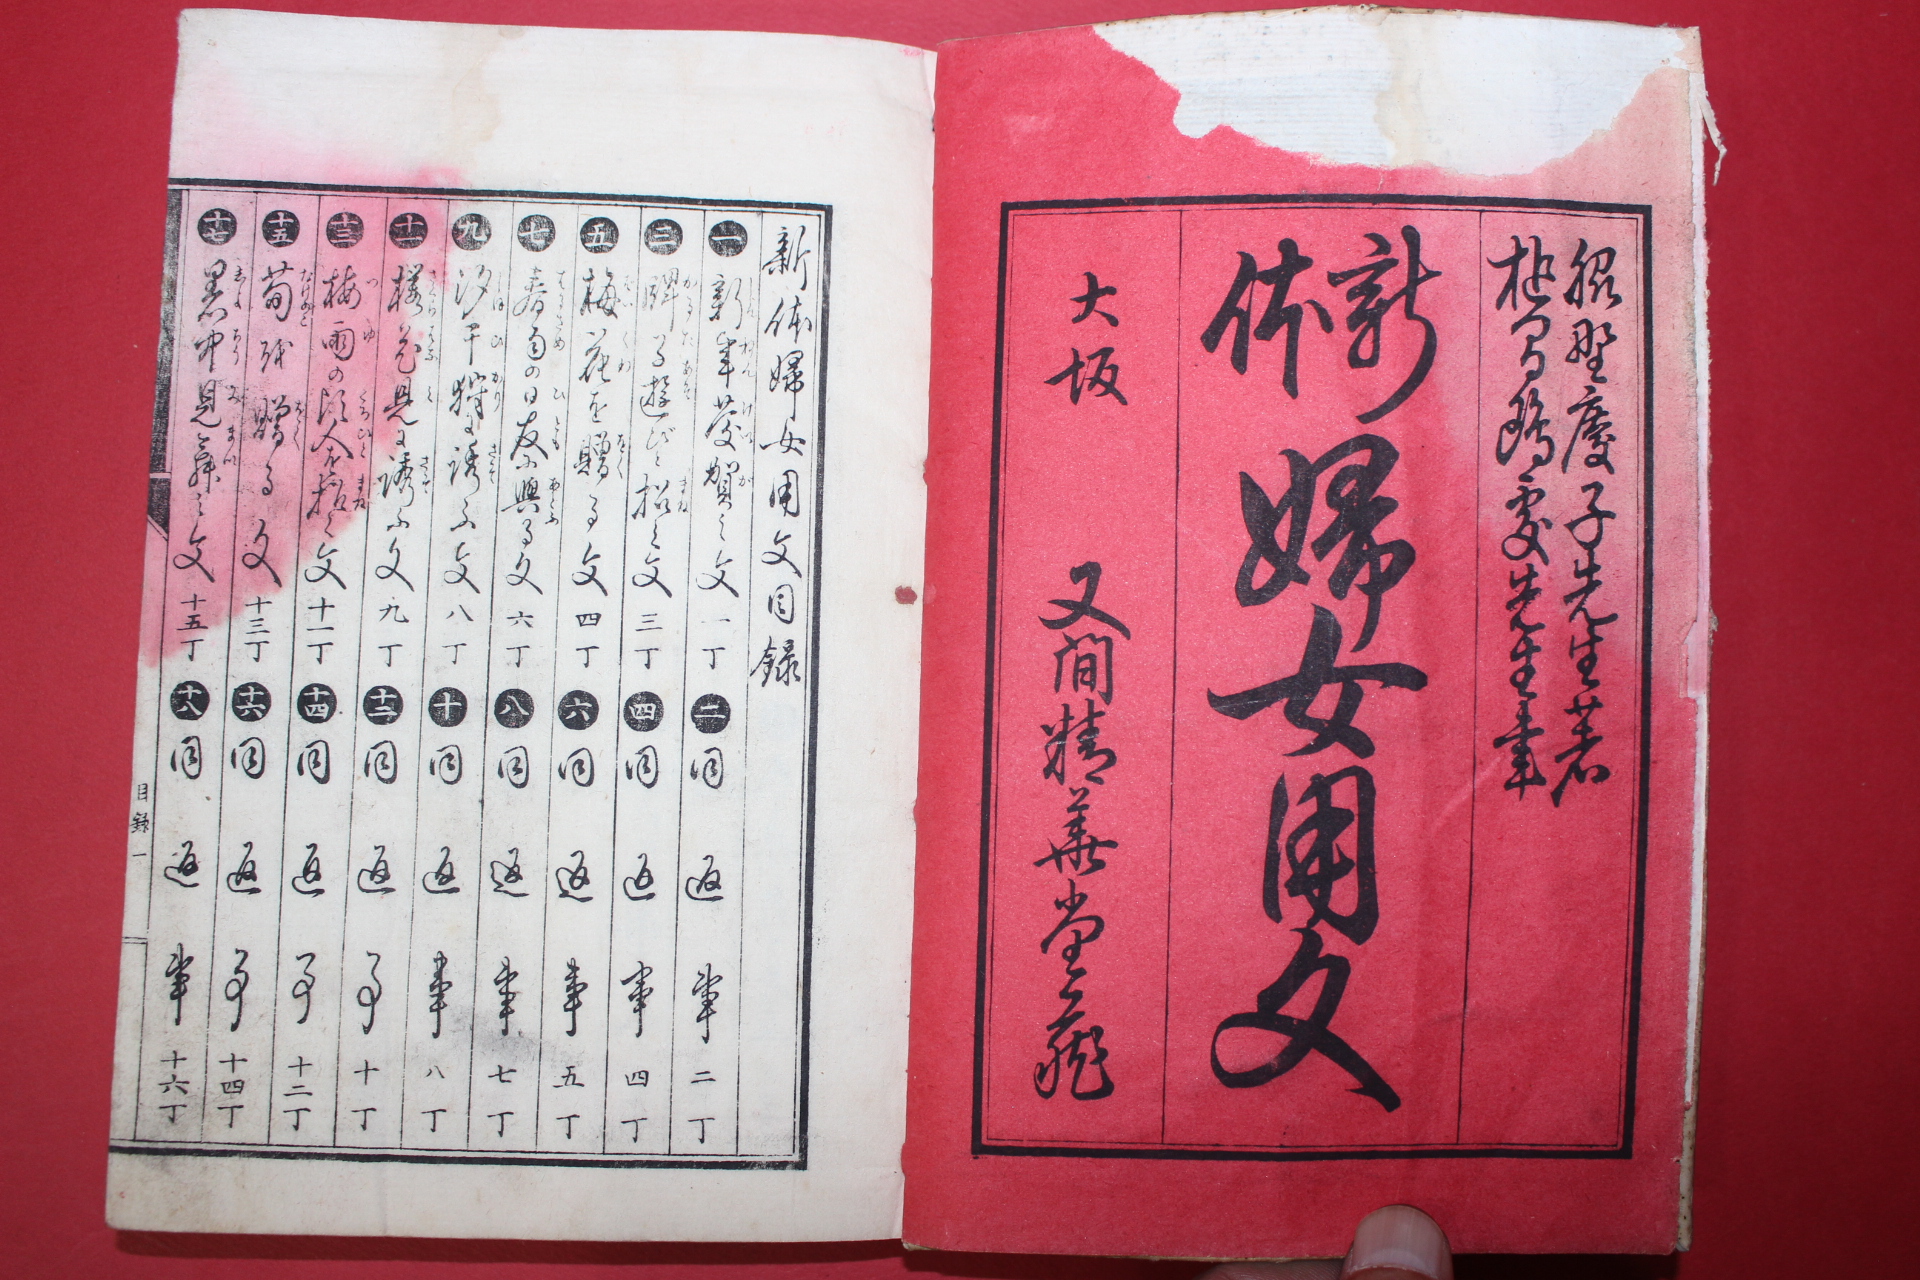 慶子先生著
先生書
新体
婦女用文
大坂
又間精華堂蔵
新体婦女用文目録
一 新年慶賀之文 一丁
二 同返事 二丁
三 牌子遊びに招く文 三丁
四 同返事 四丁
五 梅花を贈る文 四丁
六 同返事 五丁
七 春雨の日友に興る文 六丁
八 同返事 七丁
九 汐干狩に誘ふ文 八丁
十 同返事 八丁
十一 桜花見に誘ふ文 九丁
十二 同返事 十丁
十三 梅雨の頃人を招く文 十一丁
十四 同返事 十二丁
十五 筍を贈る文 十三丁
十六 同返事 十四丁
十七 暑中見舞之文 十五丁
十八 同返事 十六丁
目録 一